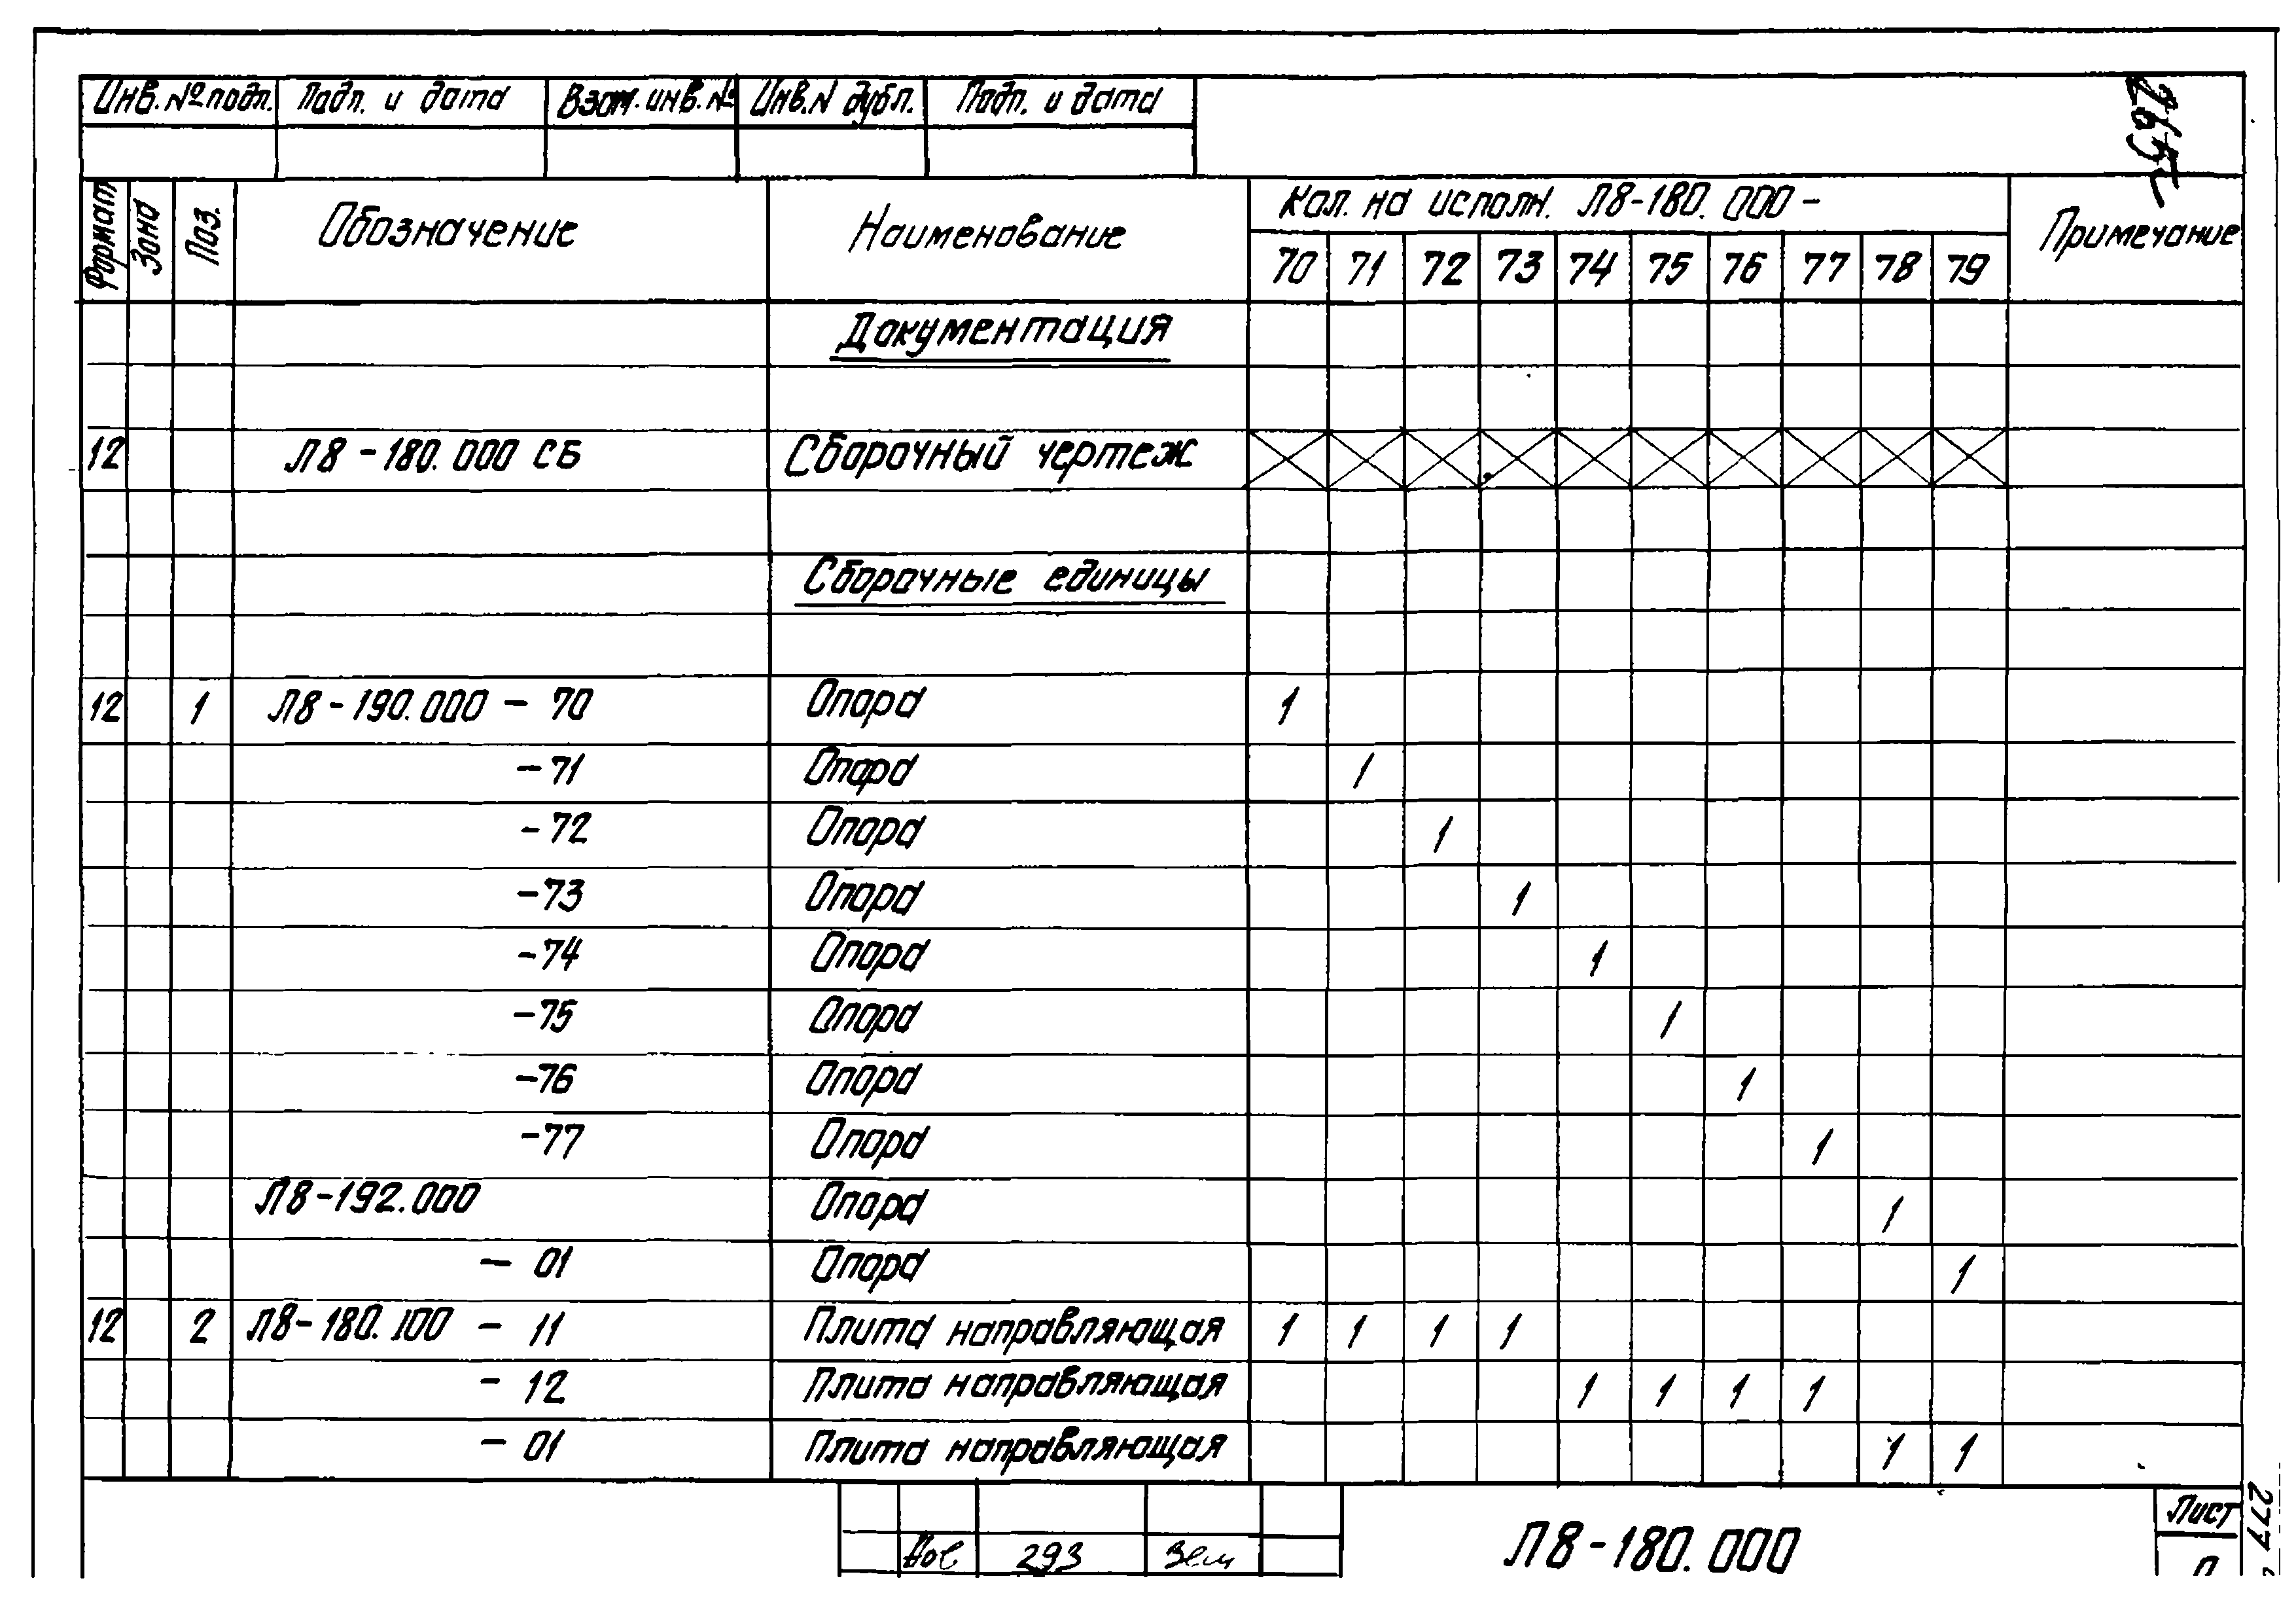 Инв. № подл. Подп. и дата Взам. инв. № Инв. N дубл. Подп. и дата
265
Формат Зона Поз. Обозначение Наименование Кол. на исполн. Л8-180.000- Примечание
70 71 72 73 74 75 76 77 78 79
Документация
12 Л8-180.000 СБ Сборочный чертеж
Сборочные единицы
12 1 Л8-190.000 - 70 Опора 1
-71 Опора 1
-72 Опора 1
-73 Опора 1
-74 Опора 1
-75 Опора 1
-76 Опора 1
-77 Опора 1
Л8-192.000 Опора 1
- 01 Опора 1
12 2 Л8-180.100 - 11 Плита направляющая 1 1 1 1
- 12 Плита направляющая 1 1 1 1
- 01 Плита направляющая 1 1
293
Л8-180.000
Лист
277